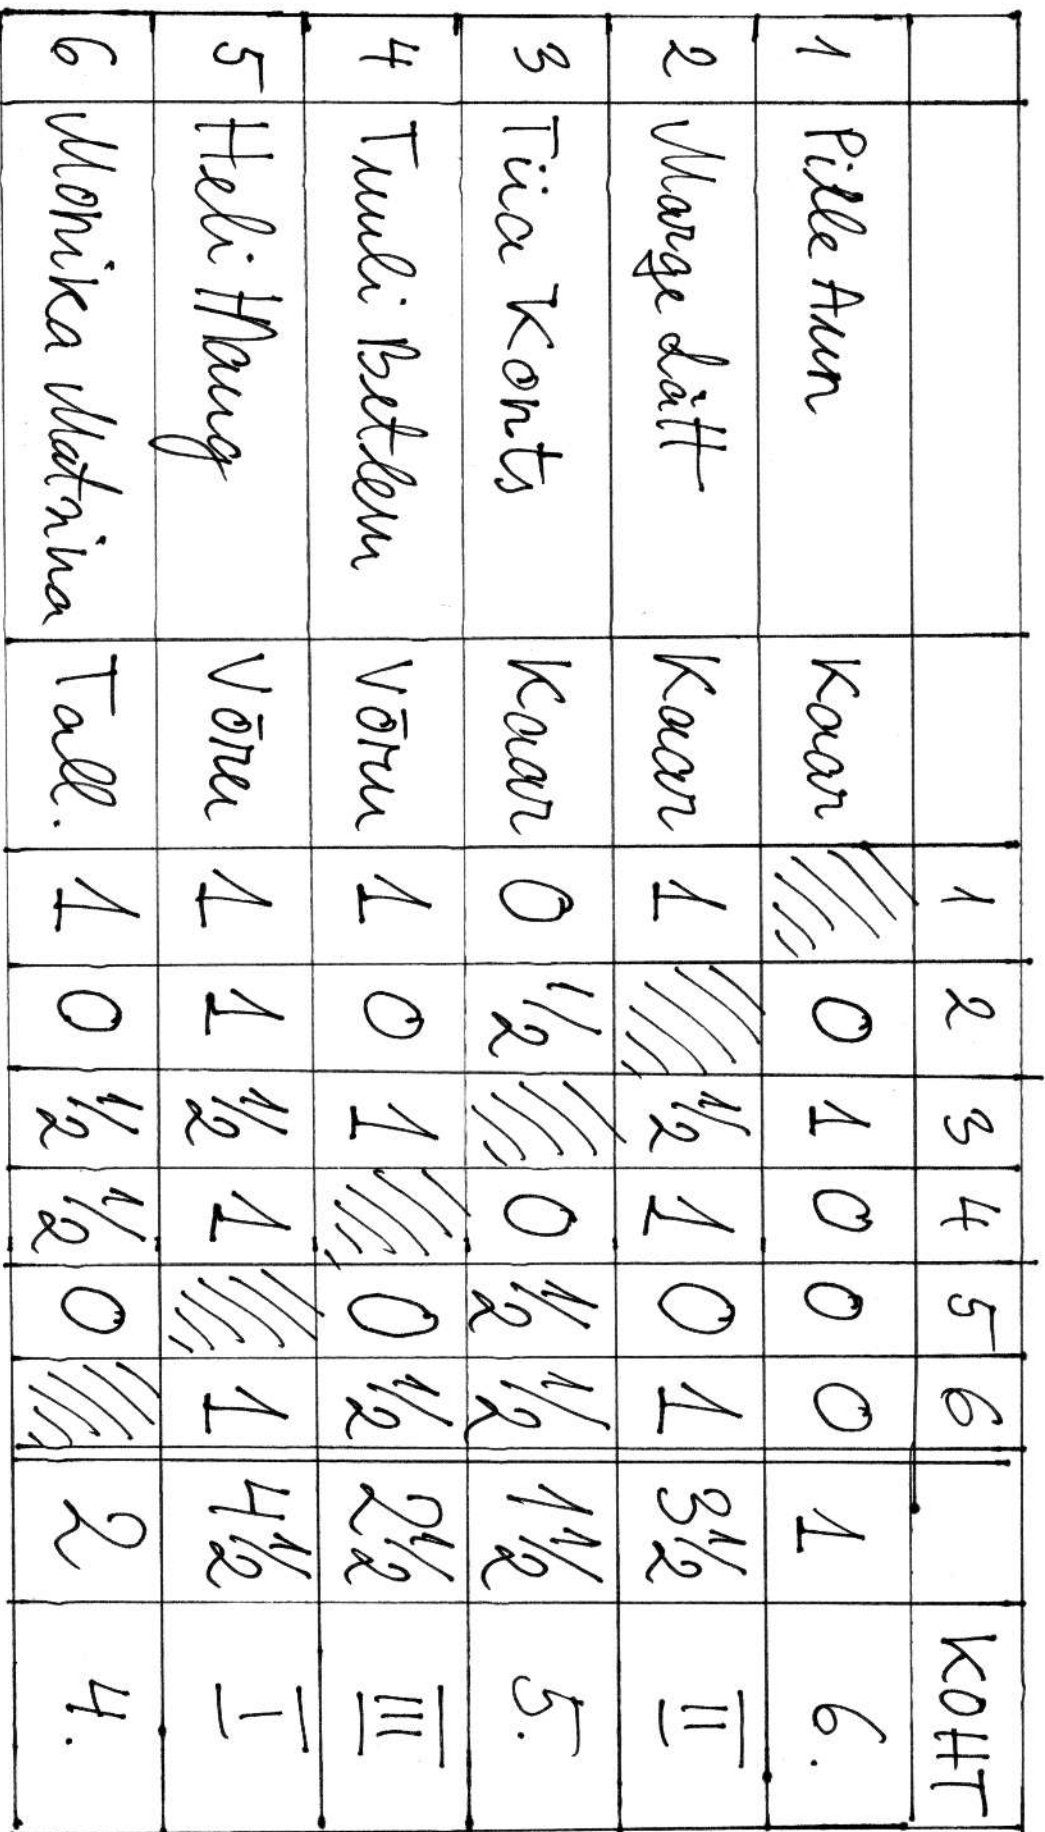 1 2 3 4 5 6 KOHT
1 Pille Aun Kaar 0 1 0 0 0 1 6.
2 Marge Lätt Kaar 1 1/2 1 0 1 3 1/2 II
3 Tiia Konts Kaar 0 1/2 0 1/2 1/2 1 1/2 5.
4 Tuuli Betlem Võru 1 0 1 0 1/2 2 1/2 III
5 Heli Haug Võru 1 1 1/2 1 1 4 1/2 I
6 Monika Matsina Tall. 1 0 1/2 1/2 0 2 4.